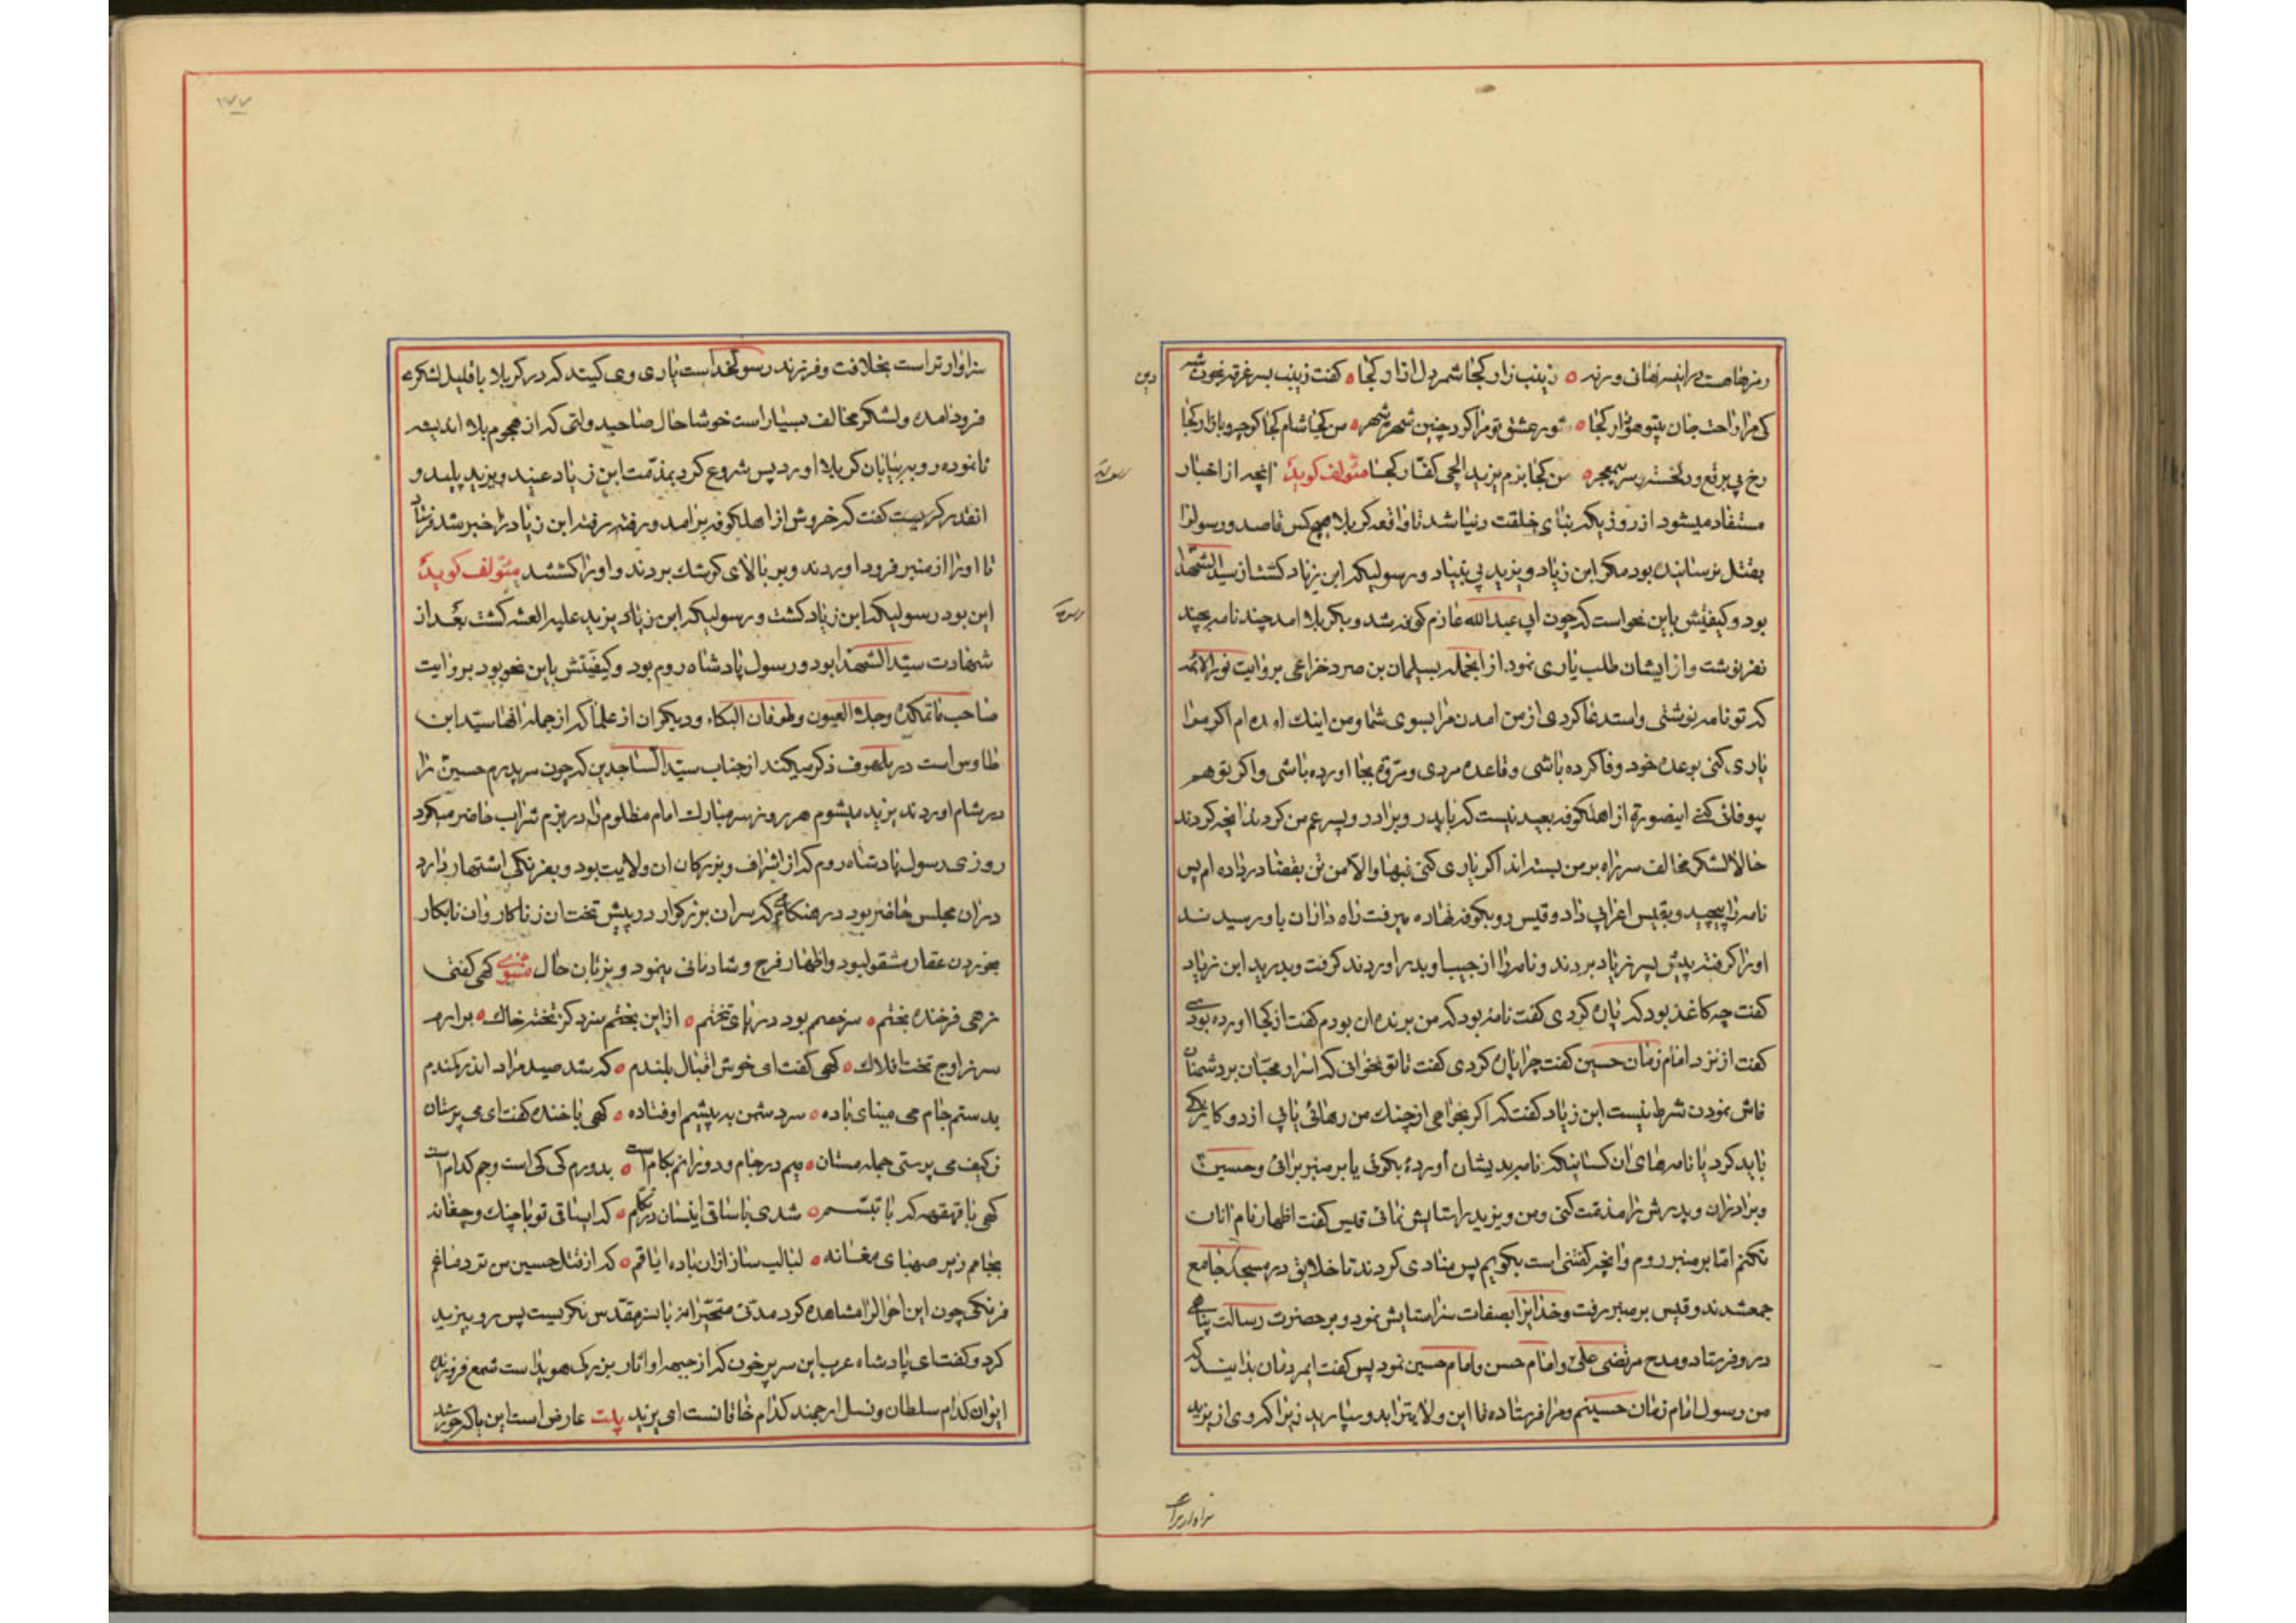 زینب زار کجا شمر دل ازار کجا ٥ گفت زینب بسر غرقه بخونت
کی مرا راحت جان بیتو هوار کجا ٥ شور عشق تو مرا کرد چنین شهره شهر ٥ من کجا شام کجا کوچه و بازار کجا
رخ بی برقع و بسر معجر ٥ من کجا بزم یزید الحی کفار کجا مئولف کوید انچه از اخبار
مستفاد میشود از روزیکه بنای خلقت دنیا شد تا واقعه کربلا هیچکس قاصد و رسولرا
بقتل نرسانیده بود مکر ابن زیاد و یزید بی بنیاد و رسولیکه ابن زیاد کشت از سید الشهدا
بود و کیفیتش باین نحو است که چون ابی عبد الله عازم کوفه شد و بکربلا امد چند نامه بچند
نفر نوشت و از ایشان طلب یاری نمود از انجمله بسلیمان بن صرد خزاعی بروایت نور الائمه
که تو نامه نوشتی و استدعا کردی از من امدن مرا بسوی شما و من اینک امده ام اکر مرا
یاری کنی بوعده خود وفا کرده باشی و قاعده مردی و مروة بجا اورده باشی و اکر تو هم
بیوفائی کنی اینصورة از اهل کوفه بعید نیست که با پدر و برادر و پسر عم من کردند انچه کردند
حالا لشکر مخالف سر راه بر من بسته اند اکر یاری کنی فبها و الا من تن بقضا در داده ام پس
نامه را پیچید و بقیس اعرابی داد و قیس رو بکوفه نهاده میرفت راه داران باو رسیدند
او را کرفته پیش پسر زیاد بردند و نامه را از جیب او بدر اوردند کرفت و بدرید ابن زیاد
کفت چه کاغذ بود که پاره کردی کفت نامه بود که من برنده ان بودم کفت از کجا اورده بودی
کفت از نزد امام زمان حسین کفت چرا پاره کردی کفت تا تو نخوانی که اسرار محبان بر دشمنان
فاش نمودن شرط نیست ابن زیاد کفت که اکر بخواهی از چنک من رهائی یابی از دو کار یکی
باید کرد یا نامهای ان کسانیکه نامه بدیشان اوردهٔ بکوئی یا بر منبر برائی و حسین
و برادران و پدرش را مذمت کنی و من و یزید را ستایش نمائی قیس کفت اظهار نام انان
نکنم اما بر منبر روم و انچه کفتنی است بکویم پس منادی کردند تا خلایق در مسجد جامع
جمعشدند و قیس بر منبر رفت و خدایرا بصفات سزا ستایش نمود و بر حضرت رسالت پناهی
درود فرستاد و مدح مرتضی علی و امام حسن و امام حسین نمود پس کفت ایمردمان بدانید که
من رسول امام زمان حسینم و مرا فرستاده تا این ولایترا بدو سپارید زیرا که وی از یزید
سزاوار تر است
سزاوار تر است بخلافت و فرزند رسولخداست یاری وی کنید که در کربلا با قلیل لشکری
فرود امده و لشکر مخالف بسیار است خوشا حال صاحبدولتی که از هجوم بلا اندیشه
نانموده رو به بیابان کربلا اورد پس شروع کرد بمذمت ابن زیاد عنید و یزید پلید و
انقدر کریست کفت که خروش از اهل کوفه برامد و رفته رفته ابن زیاد را خبر شد فرستاد
تا او را از منبر فرود اوردند و بر بالای کوشک بردند و او را کشتند مئولف کوید
این بود رسولیکه ابن زیاد کشت و رسولیکه یزید علیه العنه کشت بعد از
شهادت سید الشهدا بود و رسول پادشاه روم بود و کیفیتش باین نحو بود بروایت
صاحب ماتمکده و جلاء العیون و طوفان البکاء و دیکران از علما که از جمله انها سید ابن
طاوس است در ملهوف ذکر میکند از جناب سید الساجدین که چون سر پدرم حسین را
در شام اوردند یزید میشوم هر روز سر مبارک امام مظلوم را در بزم شراب حاضر میکرد
روزی رسول پادشاه روم که از اشراف و بزرکان ان ولایت بود و بفرنکی اشتهار دارد
در ان مجلس حاضر بود در هنکامیکه سر ان بزرکوار در پیش تخت ان زناکار و ان نابکار
بخوردن عقار مشقول بود و اظهار فرح و شادمانی مینمود و بزبان حال مثنوی کهی کفتی
زهی فرخنده بختم ٥ سر خصم بود در پای تختم ٥ از این بختم سزد کز تخته خاک ٥ برارم
سر ز اوج تخت افلاک ٥ کهی کفت ای خوش اقبال بلندم ٥ که شد صید مراد اندر کمندم
بدستم جام می مینای باده ٥ سر دشمن به پیشم اوفتاده ٥ کهی با خنده کفت ای می پرستان
ز کیف می پرستی جمله مستان ٥ میم در جام و دورانم بکام است ٥ بدورم کی کی است و جم کدام است
کهی با قهقهه که با تبسم ٥ شدی با ساقی اینسان در تکلم ٥ که ایساقی تو با چنک و چغانه
بجامم ریز صهبای مغانه ٥ لبالب ساز از ان باده ایاقم ٥ که از قتل حسین من تر دماغم
فرنکی چون این احوالرا مشاهده کرد مدتی متحیرانه بانسر مقدس نکریست پس رو بیزید
کرد و کفت ای پادشاه عرب این سر پر خون که از جبهه او اثار بزرکی هویدا است شمع فروزنده
ایوان کدام سلطان و نسل ارجمند کدام خاقانست ای یزید بیت عارض است این یا که خورشید